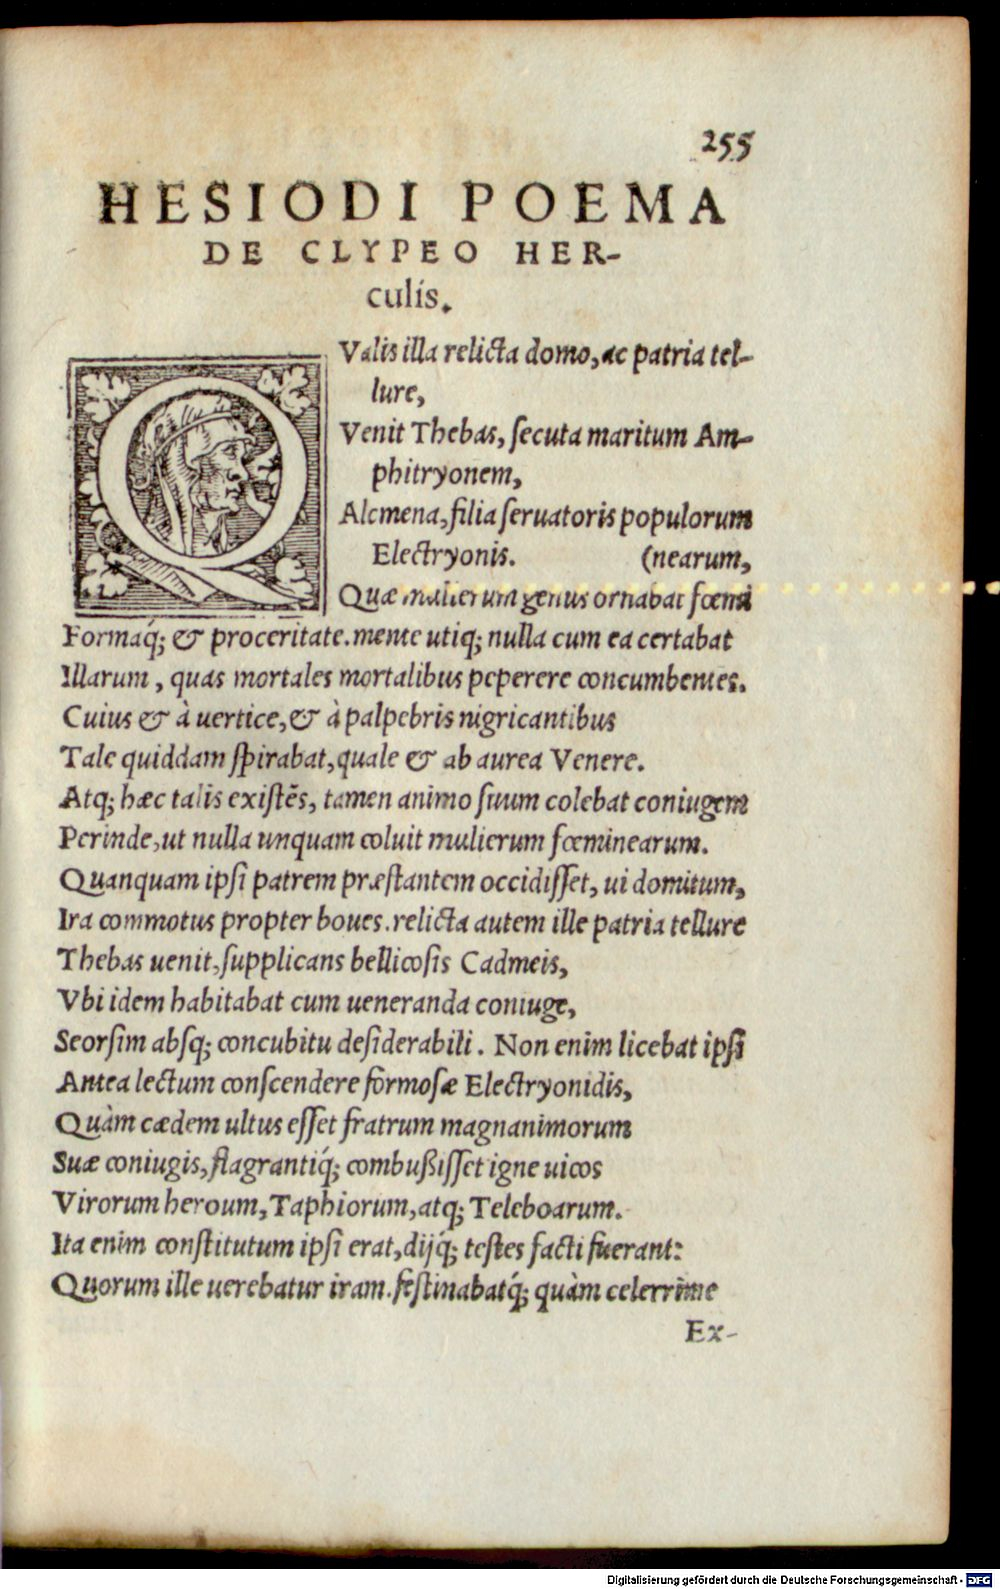 255
HESIODI POEMA
DE CLYPEO HER-
culis.
QValis illa relicta domo, ac patria tel-
lure,
Venit Thebas, secuta maritum Am-
phitryonem,
Alcmena, filia seruatoris populorum
Electryonis. (nearum,
Quæ mulierum genus ornabat fœmi
Formaq́; & proceritate. mente utiq; nulla cum ea certabat
Illarum, quas mortales mortalibus peperere concumbentes.
Cuius & à uertice, & à palpebris nigricantibus
Tale quiddam spirabat, quale & ab aurea Venere.
Atq; hæc talis existẽs, tamen animo suum colebat coniugem
Perinde, ut nulla unquam coluit mulierum fœminearum.
Quanquam ipsi patrem præstantem occidisset, ui domitum,
Ira commotus propter boues. relicta autem ille patria tellure
Thebas uenit, supplicans bellicosis Cadmeis,
Vbi idem habitabat cum ueneranda coniuge,
Seorsim absq; concubitu desiderabili. Non enim licebat ipsi
Antea lectum conscendere formosæ Electryonidis,
Quàm cædem ultus esset fratrum magnanimorum
Suæ coniugis, flagrantiq́; combußisset igne uicos
Virorum heroum, Taphiorum, atq; Teleboarum.
Ita enim constitutum ipsi erat, dijq́; testes facti fuerant:
Quorum ille uerebatur iram. festinabatq́; quàm celerrime
Ex-
Digitalisierung gefördert durch die Deutsche Forschungsgemeinschaft - DFG